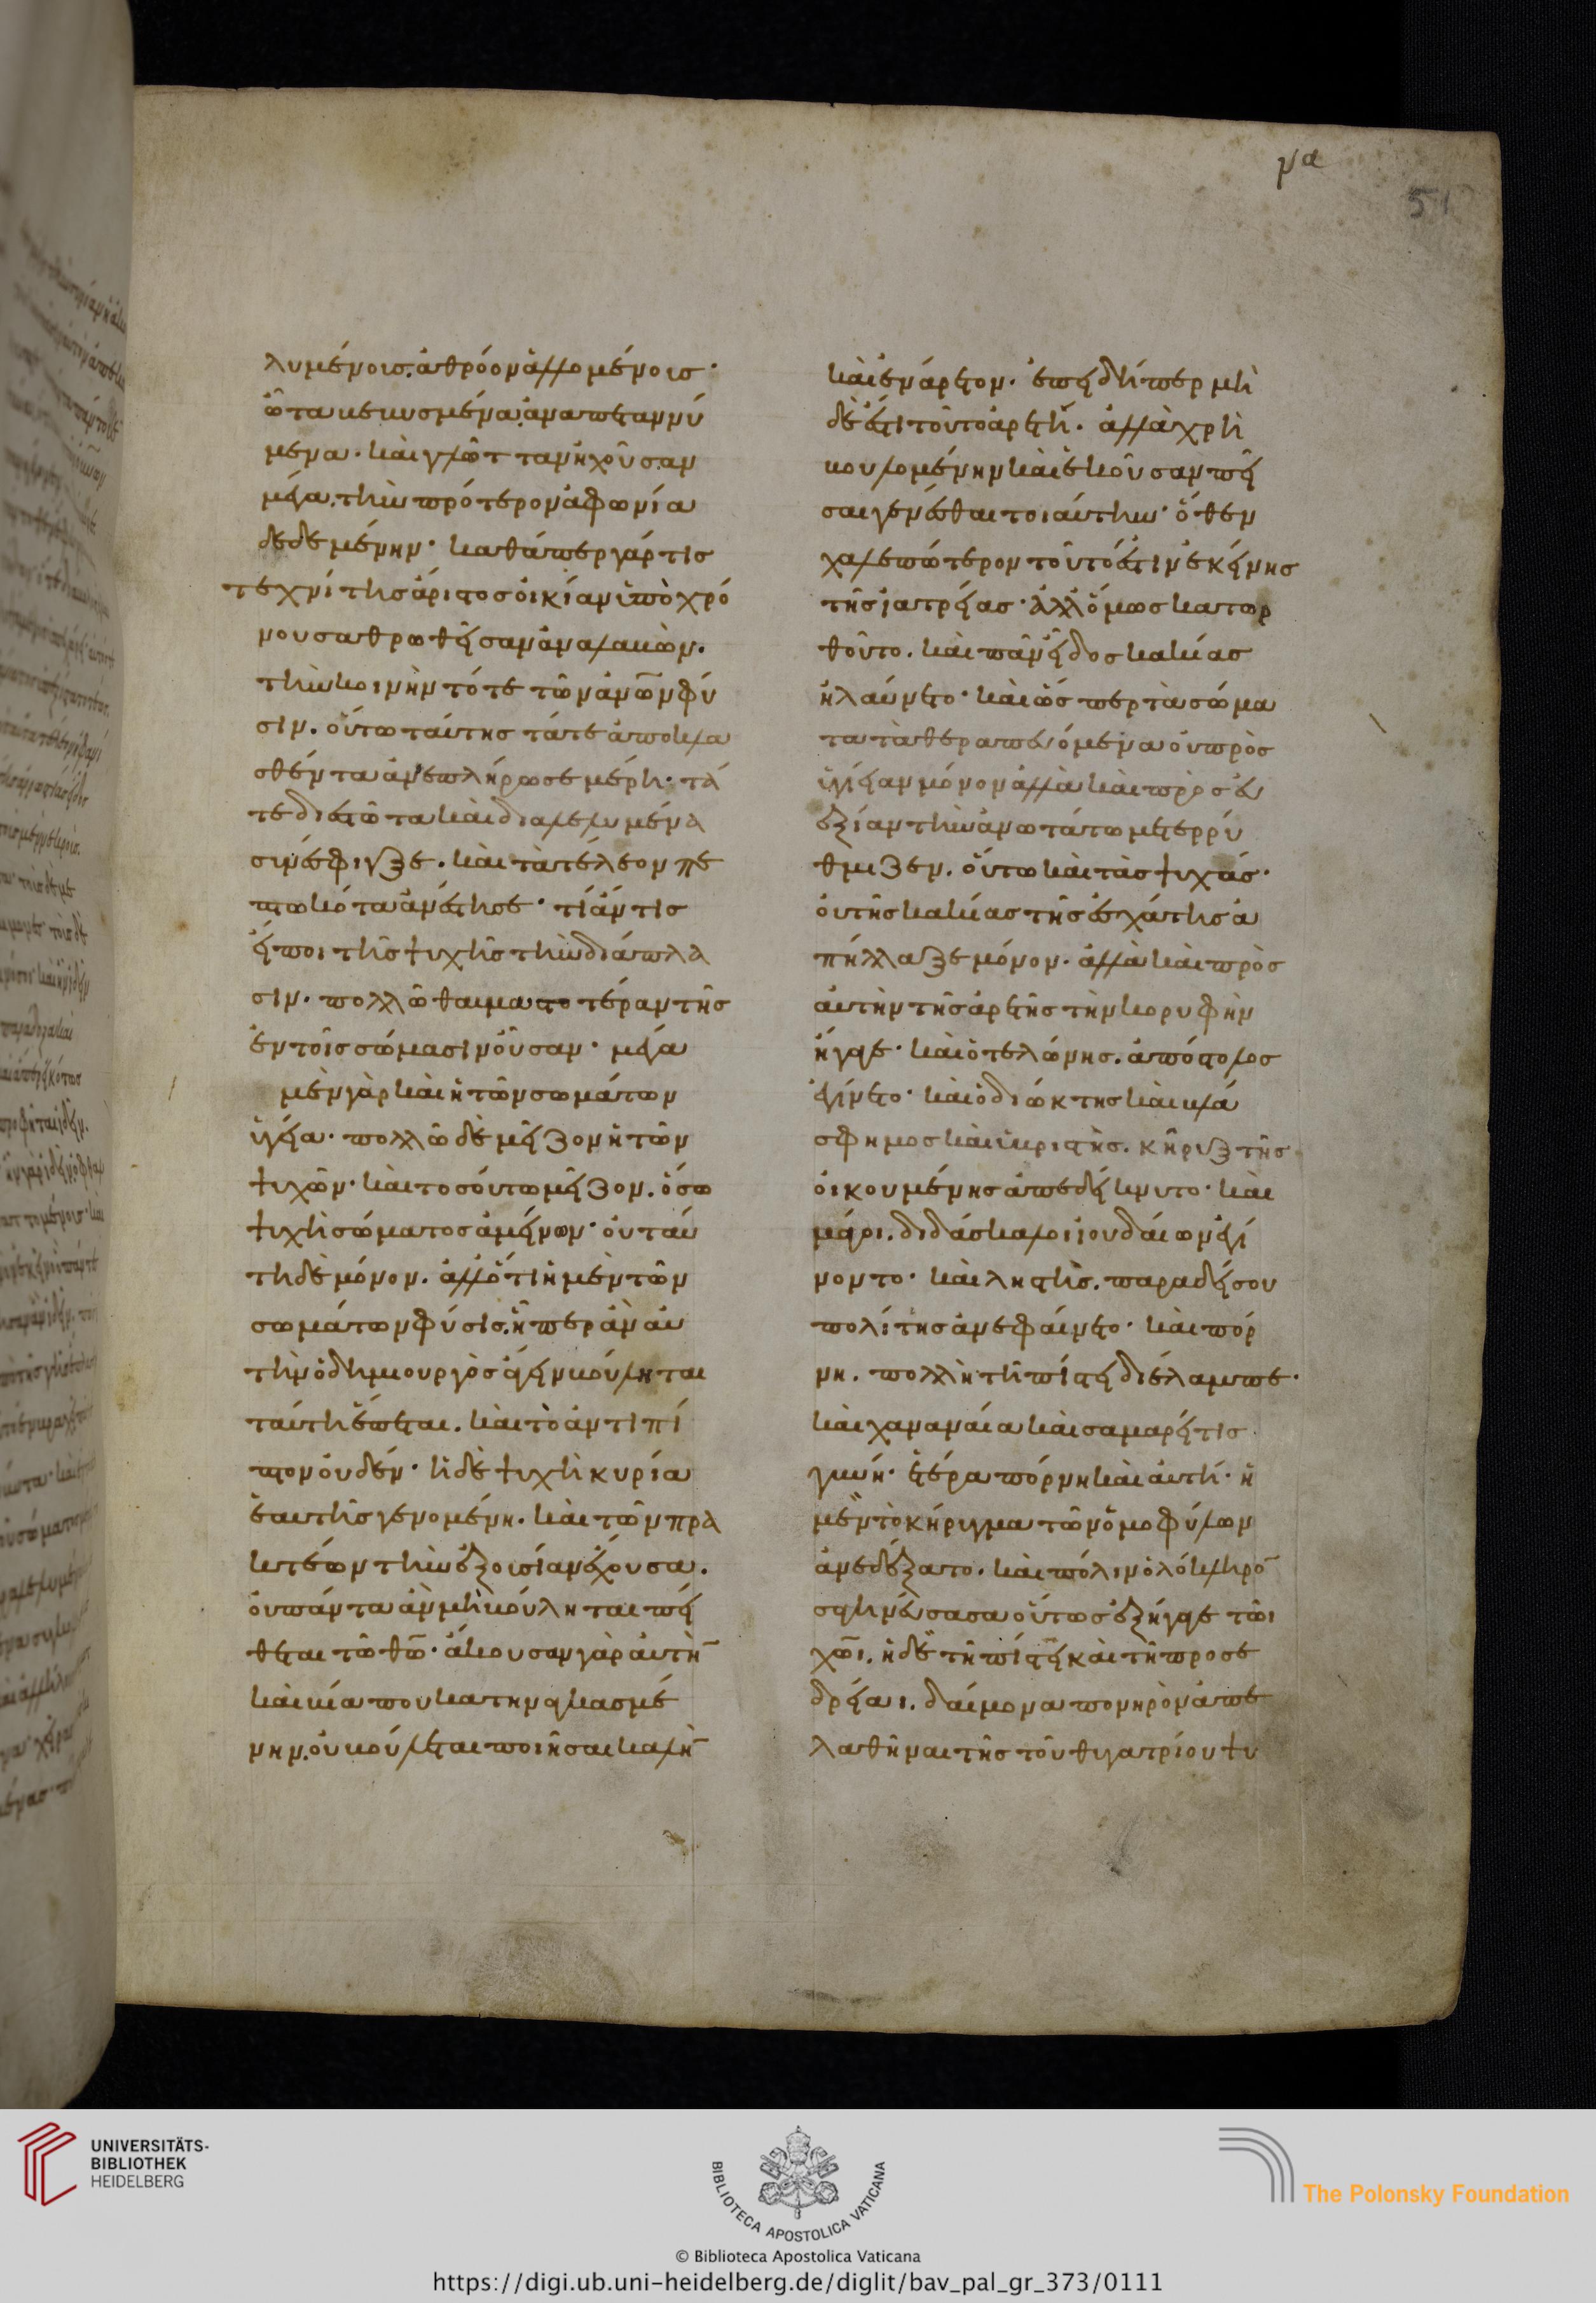 να
51
λυμένοις. ἀθρόον ἁλλομένοις·
ὦτα κεκυσμένα, ἀναπεταννύ
μενα· καὶ γλῶτταν ἠχοῦσαν
μέγα, τὴν πρότερον ἀφωνία
δεδεμένην· καθάπερ γάρ τις
τεχνίτης ἄριστος οἰκίαν ὑπὸ χρό
νου σαθρωθεῖσαν ἀναλαβὼν.
τὴν κοινὴν τότε τῶν ἀνω̅ν φύ
σιν. οὕτω ταύτης τά τε ἀποκλα
σθέντα ἀνεπλήρωσε μέρη· τά
τε διεστῶτα καὶ διαλελυμένα
συνέσφιγξε. καὶ τὰ τέλεον πε
πτωκότα ἀνέστησε· τί ἄν τις
εἴποι τῆς ψυχῆς τὴν διάπλα
σιν. πολλῶ θαυμαστοτέραν τῆς
ἐν τοῖς σώμασιν οὖσαν· μέγα
μὲν γὰρ καὶ ἡ τῶν σωμάτων
ὑγεία· πολλῶ δὲ μεῖζον ἡ τῶν
ψυχῶν· καὶ τοσούτω μεῖζον. ὅσω
ψυχὴ σώματος ἀμείνων· οὐ ταύ
τη δὲ μόνον. ἀλλ' ὅτι ἡ μὲν τῶν
σωμάτων φύσις. ᾗπερ ἂν αὐ
τὴν ὁ δημιουργὸς ἄγειν βούληται
ταύτη ἕψεται. καὶ τὸ ἀντιπί
πτον οὐδέν· ἡ δὲ ψυχὴ κυρία
ἑαυτῆς γενομένη. καὶ τῶν πρα
κτέων τὴν ἐξουσίαν ἔχουσα.
οὐ πάντα ἂν μὴ βούληται πεί
θεται τῶ θω̅· ἄκουσαν γὰρ αὐτὴ̅
καὶ βία που κατηναγκασμέ
νην. οὐ βούλεται ποιῆσαι καλὴ̅
καὶ ἐνάρετον. ἐπειδήπερ μη
δέ ἐστι τοῦτο ἀρετή. ἀλλὰ χρὴ
βουλομένην καὶ ἑκοῦσαν πεῖ
σαι γενέσθαι τοιαύτην· ὅθεν
χαλεπώτερον τοῦτό ἐστιν ἐκείνης
τῆς ἰατρείας· ἀλλ' ὅμως κατωρ
θοῦτο. καὶ πᾶν εἶδος κακίας
ἠλαύνετο· καὶ ὥσπερ τὰ σώμα
τα τὰ θεραπευόμενα οὐ πρὸς
ὑγίειαν μόνον ἀλλὰ καὶ πρὸς εὐ
εξίαν τὴν ἀνωτάτω μετερρύ
θμιζεν. οὕτω καὶ τὰς ψυχάς·
οὐ τῆς κακίας τῆς ἐσχάτης ἀ
πήλλαξε μόνον. ἀλλὰ καὶ πρὸς
αὐτὴν τῆς ἀρετῆς τὴν κορυφὴν
ἤγαγε· καὶ ὁ τελώνης. ἀπόστολος
ἐγίνετο· καὶ ὁ διώκτης καὶ βλά
σφημος καὶ ὑβριστὴς. κῆρυξ τῆς
οἰκουμένης ἀπεδείκνυτο· καὶ
μάγοι. διδάσκαλοι ἰουδαίων ἐγί
νοντο· καὶ ληστὴς. παραδείσου
πολίτης ἀνεφαίνετο· καὶ πόρ
νη. πολλὴ τῆ πίστει διέλαμπε·
καὶ χαναναία καὶ σαμαρεῖτις
γυνή· ἑτέρα πόρνη καὶ αὐτή· ἡ
μὲν τὸ κήρυγμα τῶν ὁμοφύλων
ἀνεδέξατο. καὶ πόλιν ὁλόκληρο̅
σαγηνεύσασα οὕτως ἐξήγαγε τῶι
χω̅ι. ἡ δὲ τῆ πίστει καὶ τῆ προσε
δρείαι. δαίμονα πονηρὸν ἀπε
λαθῆναι τῆς τοῦ θυγατρίου ψυ
UNIVERSITÄTS-
BIBLIOTHEK
HEIDELBERG
BIBLIOTECA APOSTOLICA VATICANA
The Polonsky Foundation
© Biblioteca Apostolica Vaticana
https://digi.ub.uni-heidelberg.de/diglit/bav_pal_gr_373/0111